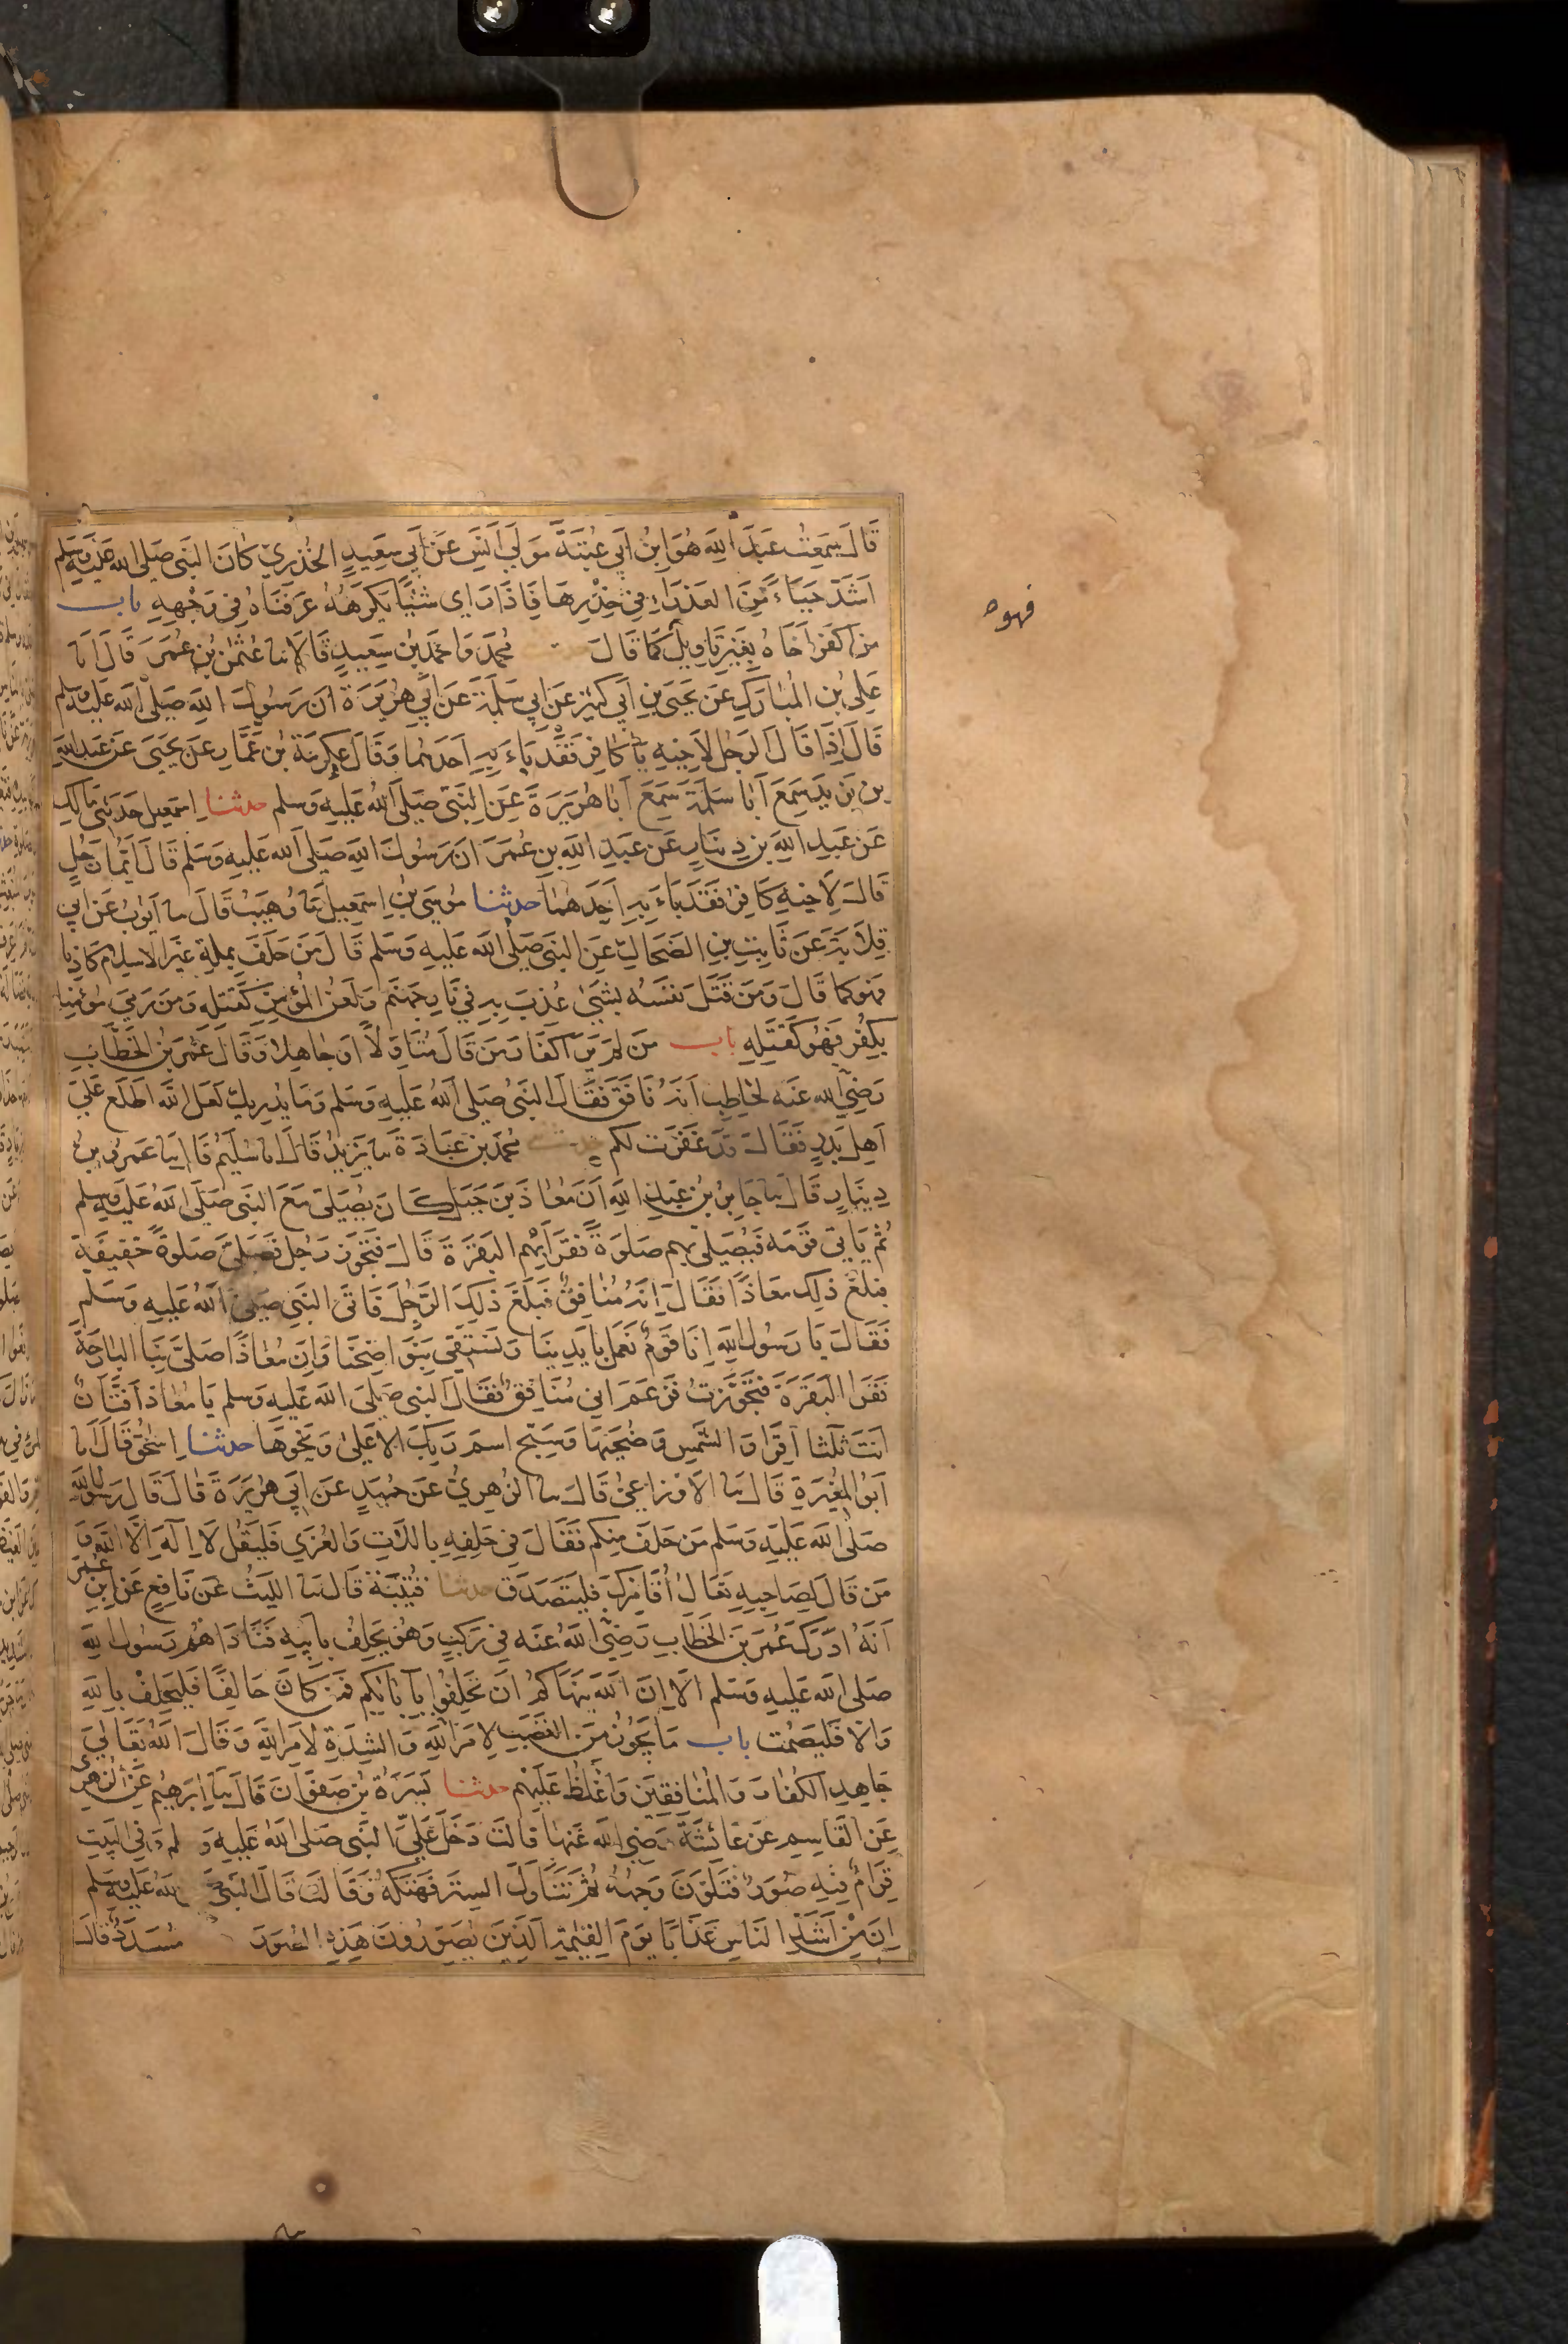 قَالَ سَمِعْتُ عَبْدَ اللهِ هُوَ ابْنُ اَبِي عُتْبَةَ مَوْلَى اَنَسٍ عَنْ اَبِي سَعِيدٍ الخُدْرِيِّ كَانَ النَّبِيُّ صَلَى الله عَلَيْهِ وَسَلَّم
اَشَدَّ حَيَاءً مِّنَ العَذْرَاءِ فِي خِدْرِهَا فَاِذَا رَاى شَيْئًا يَكْرَهُهُ عَرَفْنَاهُ فِي وَجْهِهِ باب
مَنْ اَكْفَرَ اَخَاهُ بِغَيْرِ تَاوِيلٍ كَمَا قَالَ مُحَمَّدٌ وَاَحْمَدُ بْنُ سَعِيدٍ قَالاَ نا عُثْمٰنُ بْنُ عُمَرَ قَالَ انا
عَلِيُّ بْنُ المُبَارَكِ عَنْ يَحْيَى بْنِ اَبِي كَثِيرٍ عَنْ اَبِي سَلَمَةَ عَنْ اَبِي هُرَيْرَةَ اَنَّ رَسُولَ اللهِ صَلَّى اللهُ عَلَيْهِ وَسَلَم
قَالَ اِذَا قَالَ الرَّجُلُ لاَخِيهِ يَا كَافِرُ فَقَدْ بَاءَ بِهِ اَحَدُهُمَا وَقَالَ عِكْرِمَةُ بْنُ عَمَّارٍ عَنْ يَحْيَى عَنْ عَبْدِ اللهِ
بْنِ يَزِيدَ سَمِعَ اَبَا سَلَمَةَ سَمِعَ اَبَا هُرَيْرَةَ عَنِ النَّبِيِّ صَلَّى اللهُ عَلَيْهِ وَسَلم حدثنا اِسْمَعِيلُ حَدَّثَنِي مَالِك
عَنْ عَبْدِ اللهِ بْنِ دِينَارٍ عَنْ عَبْدِ اللهِ بْنِ عُمَرَ اَنَّ رَسُولَ اللهِ صَلَى اللهُ عَلَيْهِ وَسَلم قَالَ اَيُّمَا رَجُلٍ
قَالَ لاَخِيهِ كَافِرٌ فَقَدْ بَاءَ بِهِ اَحَدُهُمَا حدثنا مُوسَى بْنُ اِسْمَعِيلَ نا وُهَيْبٌ قَالَ نا اَيُّوبُ عَنْ اَبِي
قِلاَبَةَ عَنْ ثَابِتِ بْنِ الضَّحَّاكِ عَنِ النَّبِيِّ صَلَّى اللهُ عَلَيْهِ وَسَلم قَالَ مَنْ حَلَفَ بِمِلَّةٍ غَيْرِ الاسْلاَمِ كَاذِبًا
فَهُوَ كَمَا قَالَ وَمَنْ قَتَلَ نَفْسَهُ بِشَيْءٍ عُذِّبَ بِهِ فِي نَارِ جَهَنَّمَ وَلَعْنُ المُؤْمِنِ كَقَتْلِهِ وَمَنْ رَمَى مُؤْمِنًا
بِكُفْرٍ فَهُوَ كَقَتْلِهِ باب مَنْ لَمْ يَرَ اكْفَارَ مَنْ قَالَ مُتَاَوِّلاً اَوْ جَاهِلاً وَقَالَ عُمَرُ بْنُ الخَطَّابِ
رَضِيَ اللهُ عَنْه لحَاطِبٍ اَنَّهُ نَافَقَ فَقَالَ النَّبِيُّ صَلَى اللهُ عَلَيْهِ وَسَلم وَمَا يُدْرِيكَ لَعَلَّ اللهَ اطَّلَعَ عَلَى
اَهْلِ بَدْرٍ فَقَالَ قَدْ غَفَرْتُ لَكُم مُحَمَّدُ بْنُ عَبَادَةَ نا يَزِيدُ قَالَ انا سُلَيْمٌ قَالَ نا عَمْرُو بْنُ
دِينَارٍ قَالَ نا جَابِرُ بْنُ عَبْدِ اللهِ اَنَّ مُعَاذَ بْنَ جَبَلٍ كَانَ يُصَلِّى مَعَ النَّبِي صَلَّى اللهُ عَلَيْهِ وَسَلم
ثُمَّ يَاْتِي قَوْمَه فَيُصَلِّي بِهِمْ صَلوَةً فَقَرَاَ بِهِمُ البَقَرَةَ قَالَ فَتَجَوَّزَ رَجُلٌ فَصَلَّى صَلَوةً خَفِيفَةً
فبَلَغَ ذلِكَ مُعَاذًا فَقَالَ اِنَّهُ مُنَافِقٌ فَبَلَغَ ذَلِكَ الرَّجُلَ فَاَتَى النَّبِيَ صَلَى اللهُ عَلَيْهِ وَسَلَم
فَقَالَ يَا رَسُولَ اللهِ اِنَّا قَوْمٌ نَعْمَلُ بِاَيْدِينَا وَنَسْتَقِي بِنَوَاضِحِنَا وَاِنَّ مُعَاذًا صَلَّى بِنَا البَارِحَةَ
فَقَرَا البَقَرَةَ فَتَجَوَّزْتُ فَزَعَمَ اَنِّي مُنَافِقٌ فَقَالَ النَبِي صَلَى اللهُ عَلَيْهِ وَسَلم يَا مُعَاذُ اَفَتَّانٌ
اَنْتَ ثَلٰثًا اقْرَا وَالشَّمْسِ وَضُحٰيهَا وَسَبِّحِ اسْمَ رَبِّكَ الاَعْلَى وَنَحْوَهَا حدثنا اِسْحٰقُ قَالَ انا
اَبُو المُغِيرَةِ قَالَ نا الاَوْزَاعِيُّ قَالَ نا الزُهْرِيُّ عَنْ حُمَيْدٍ عَنْ اَبِي هُرَيْرَةَ قَالَ قَالَ رَسُولُ اللهِ
صَلَّى اللهُ عَلَيْهِ وَسَلم مَنْ حَلَفَ مِنْكُمْ فَقَالَ فِي حَلِفِهِ بِاللاَّتِ وَالعُزَّى فَلْيَقُلْ لاَ اِلَهَ اِلاَّ اللهُ وَ
مَنْ قَالَ لِصَاحِبِهِ تَعَالَ اُقَامِرْكَ فَلْيَتَصَدَّقْ حدثنا قُتَيْبَةُ قَالَ نا اللَّيْثُ عَنْ نَافِعٍ عَنِ ابْنِ عُمَرَ
اَنَّهُ اَدْرَكَ عُمَرَ بْنَ الخَطَّابِ رَضِيَ اللهُ عَنْه فِي رَكْبٍ وَهُوَ يَحْلِفُ بِاَبِيهِ فَنَادَاهُمْ رَسُولُ اللهِ
صَلى اللهُ عَلَيْهِ وَسَلم اَلاَ اِنَّ اللهَ يَنْهَاكُمْ اَنْ تَحْلِفُوا بِآبَائِكُمْ فَمَنْ كَانَ حَالِفًا فَلْيَحْلِفْ بِاللهِ
وَاِلاَّ فَلْيَصْمُت باب مَا يَجُوزُ مِنَ الغَضَبِ لاَمْرِ اللهِ وَالشِّدَّةِ لاَمْرِ اللهِ وَقَالَ اللهُ تَعَالَى
جَاهِدِ الكُفَّارَ وَالمُنَافِقِينَ وَاغْلُظْ عَلَيْهِمْ حدثنا يَسَرَةُ بْنُ صَفْوَانَ قَالَ نا اِبْرَهِيمُ عَنِ الزُّهْرِيِّ
عَنِ القَاسِمِ عَنْ عَائِشَةَ رَضِيَ اللهُ عَنْهَا قَالَتْ دَخَلَ عَلَيَّ النَّبِي صَلى اللهُ عَلَيْهِ وَ لم وَفِي البَيْتِ
قِرَامٌ فِيهِ صُوَرٌ فَتَلَوَّنَ وَجْهُهُ ثُمَّ تَنَاوَلَ السِّتْرَ فَهَتَكَهُ وَقَالَتْ قَالَ النَّبِيُّ اللهُ عَلَيْهِ وَسَلم
اِنَّ مِنْ اَشَدِّ النَّاسِ عَذَابًا يَوْمَ القِيٰمَةِ الَّذِينَ يُصَوِّرُونَ هَذِهِ الصُّوَرَ مُسَدَّدٌ قَالَ
فهوه